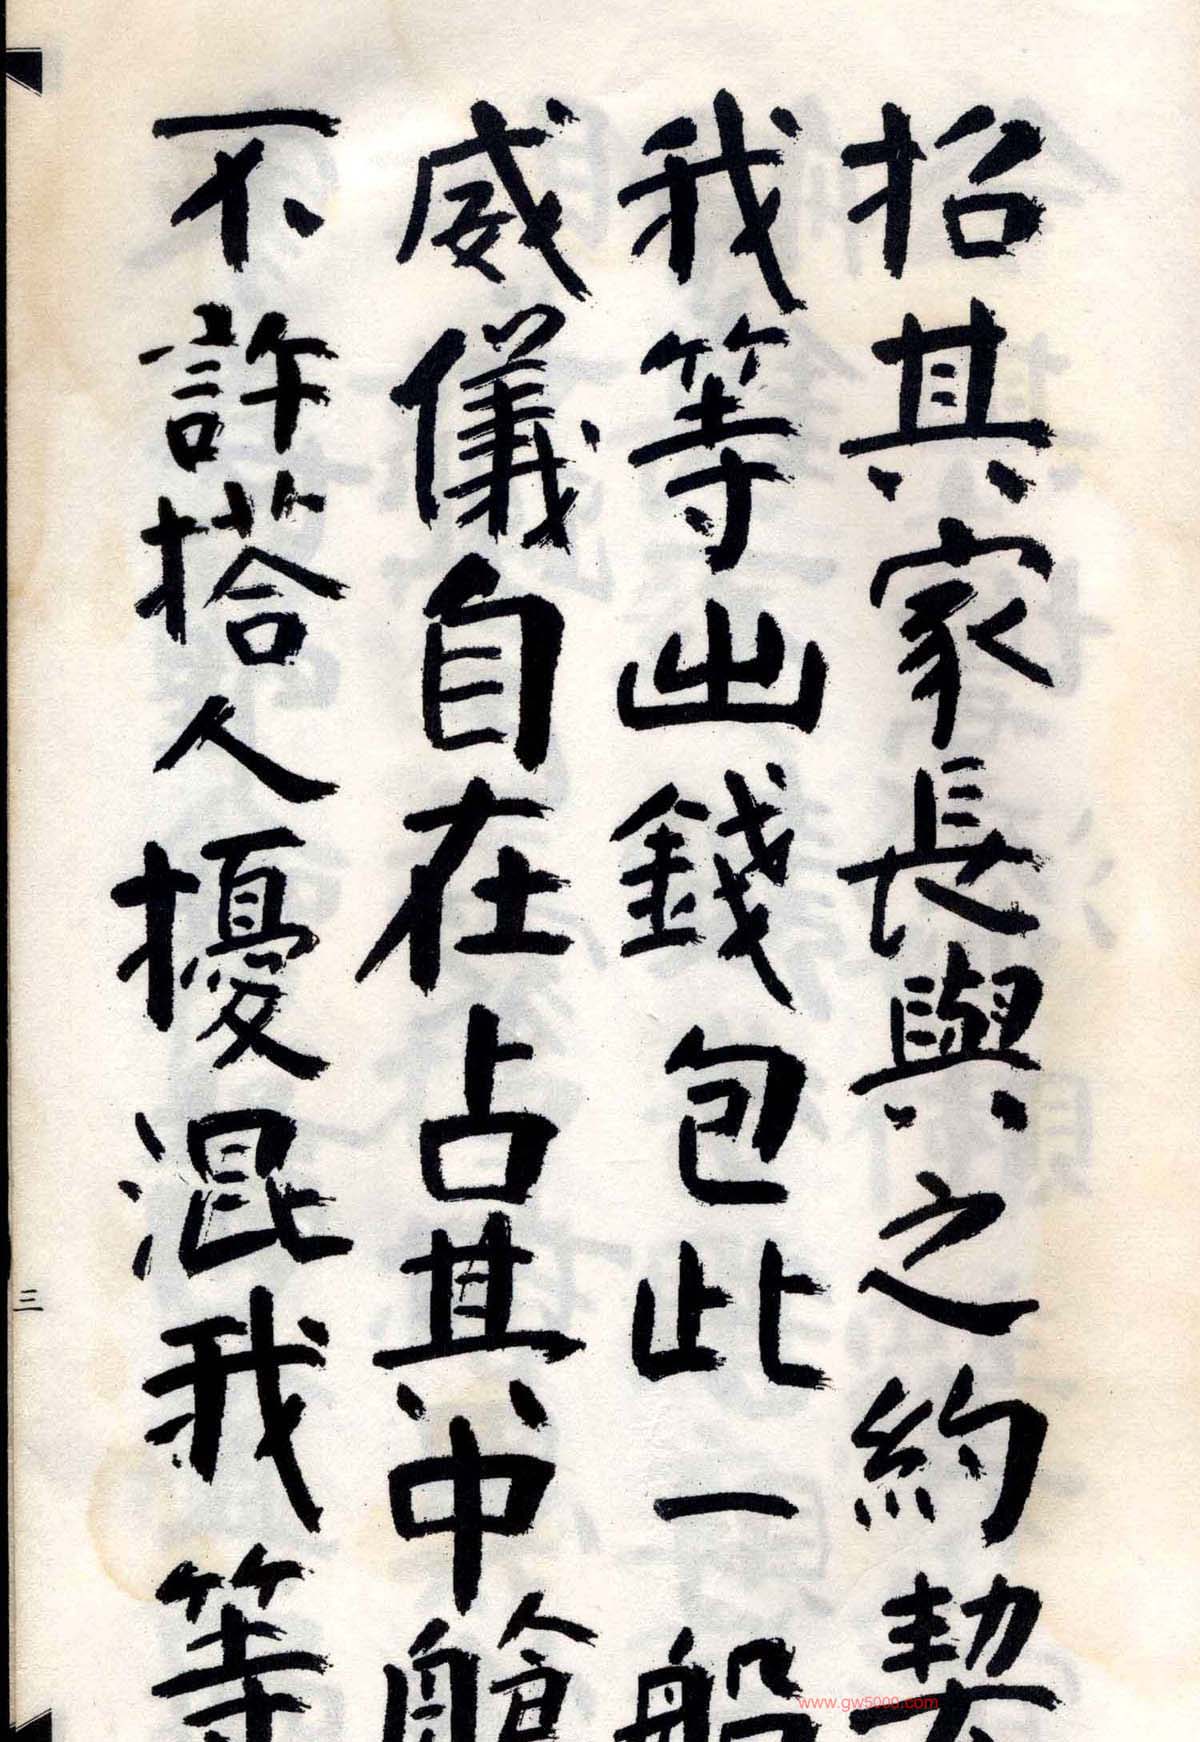 招其家長與之約契
我等出錢包此一船
威儀自在占其中艙
不許搭人擾混我等
三
www.gw5000.com